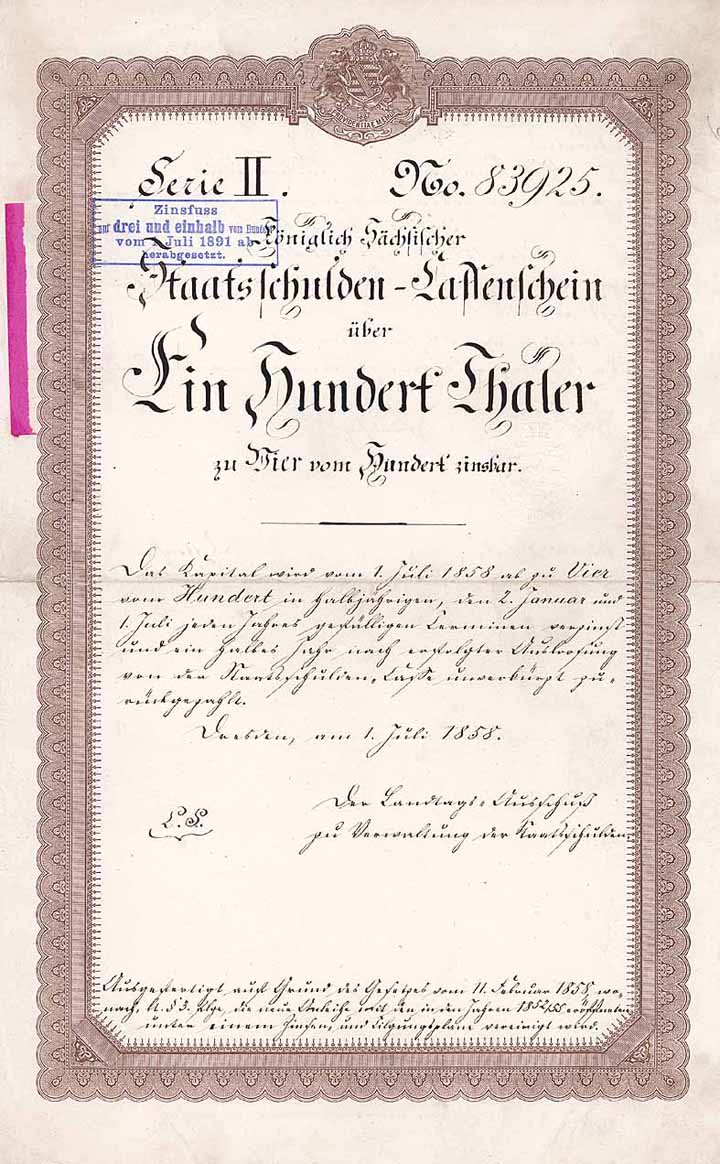 PROVIDENTIAE MEMOR
Serie II. No. 83925.
Zinsfuss
auf drei und einhalb vom Hundert
vom 1. Juli 1891 ab
herabgesetzt.
Königlich Sächsischer
Staatsschulden-Cassenschein
über
Ein Hundert Thaler
zu Vier vom Hundert zinsbar.
Das Kapital wird vom 1. Juli 1858 ab zu Vier
vom Hundert in halbjährigen, den 2. Januar und
1. Juli jeden Jahres gefälligen Terminen verzinst
und ein halbes Jahr nach erfolgter Ausloosung
von der Staatsschulden-Casse unverkürzt zu-
rückgezahlt.
Dresden, am 1. Juli 1858.
Der Landtags-Ausschuß
L. S.
zu Verwaltung der Staatsschulden
Ausgefertigt auf Grund des Gesetzes vom 11. Februar 1858, wo-
nach, die neue Anleihe mit den in den Jahren 1852/55 eröffneten
unter einem Zinsen- und Tilgungsplane vereinigt wird.